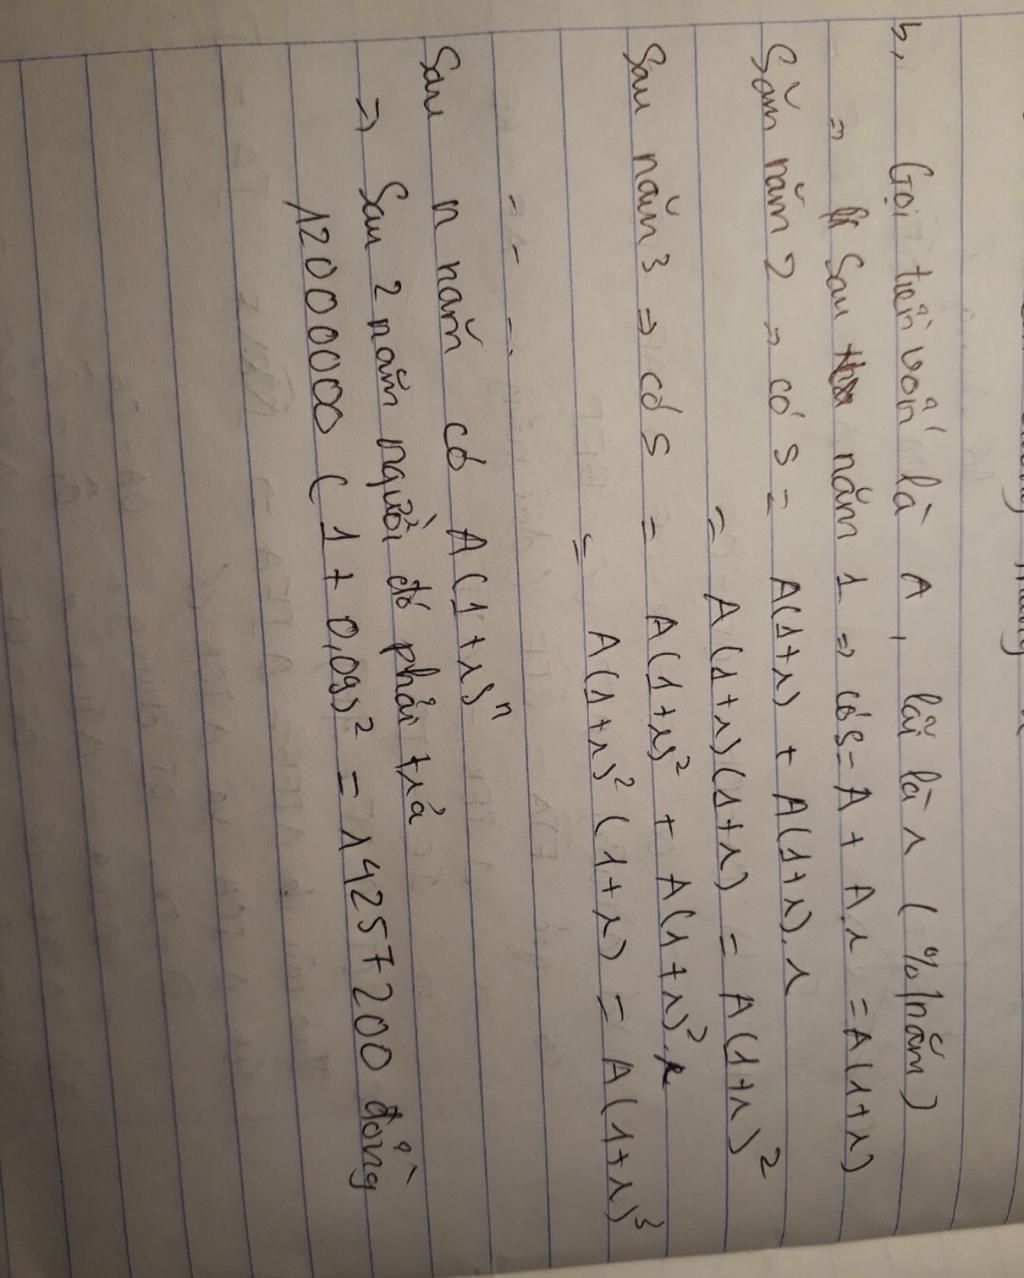 b, Gọi tiền vốn là A, lãi là r (%/năm)
=> Sau năm 1 => có S = A + A.r = A(1+r)
Săm năm 2 => có S = A(1+r) + A(1+r).r
= A(1+r)(1+r) = A(1+r)²
Sau năm 3 => có S = A(1+r)² + A(1+r)².r
= A(1+r)²(1+r) = A(1+r)³
Sau n năm có A(1+r)ⁿ
=> Sau 2 năm người đó phải trả
12000000 (1+0,09)² = 14257200 đồng